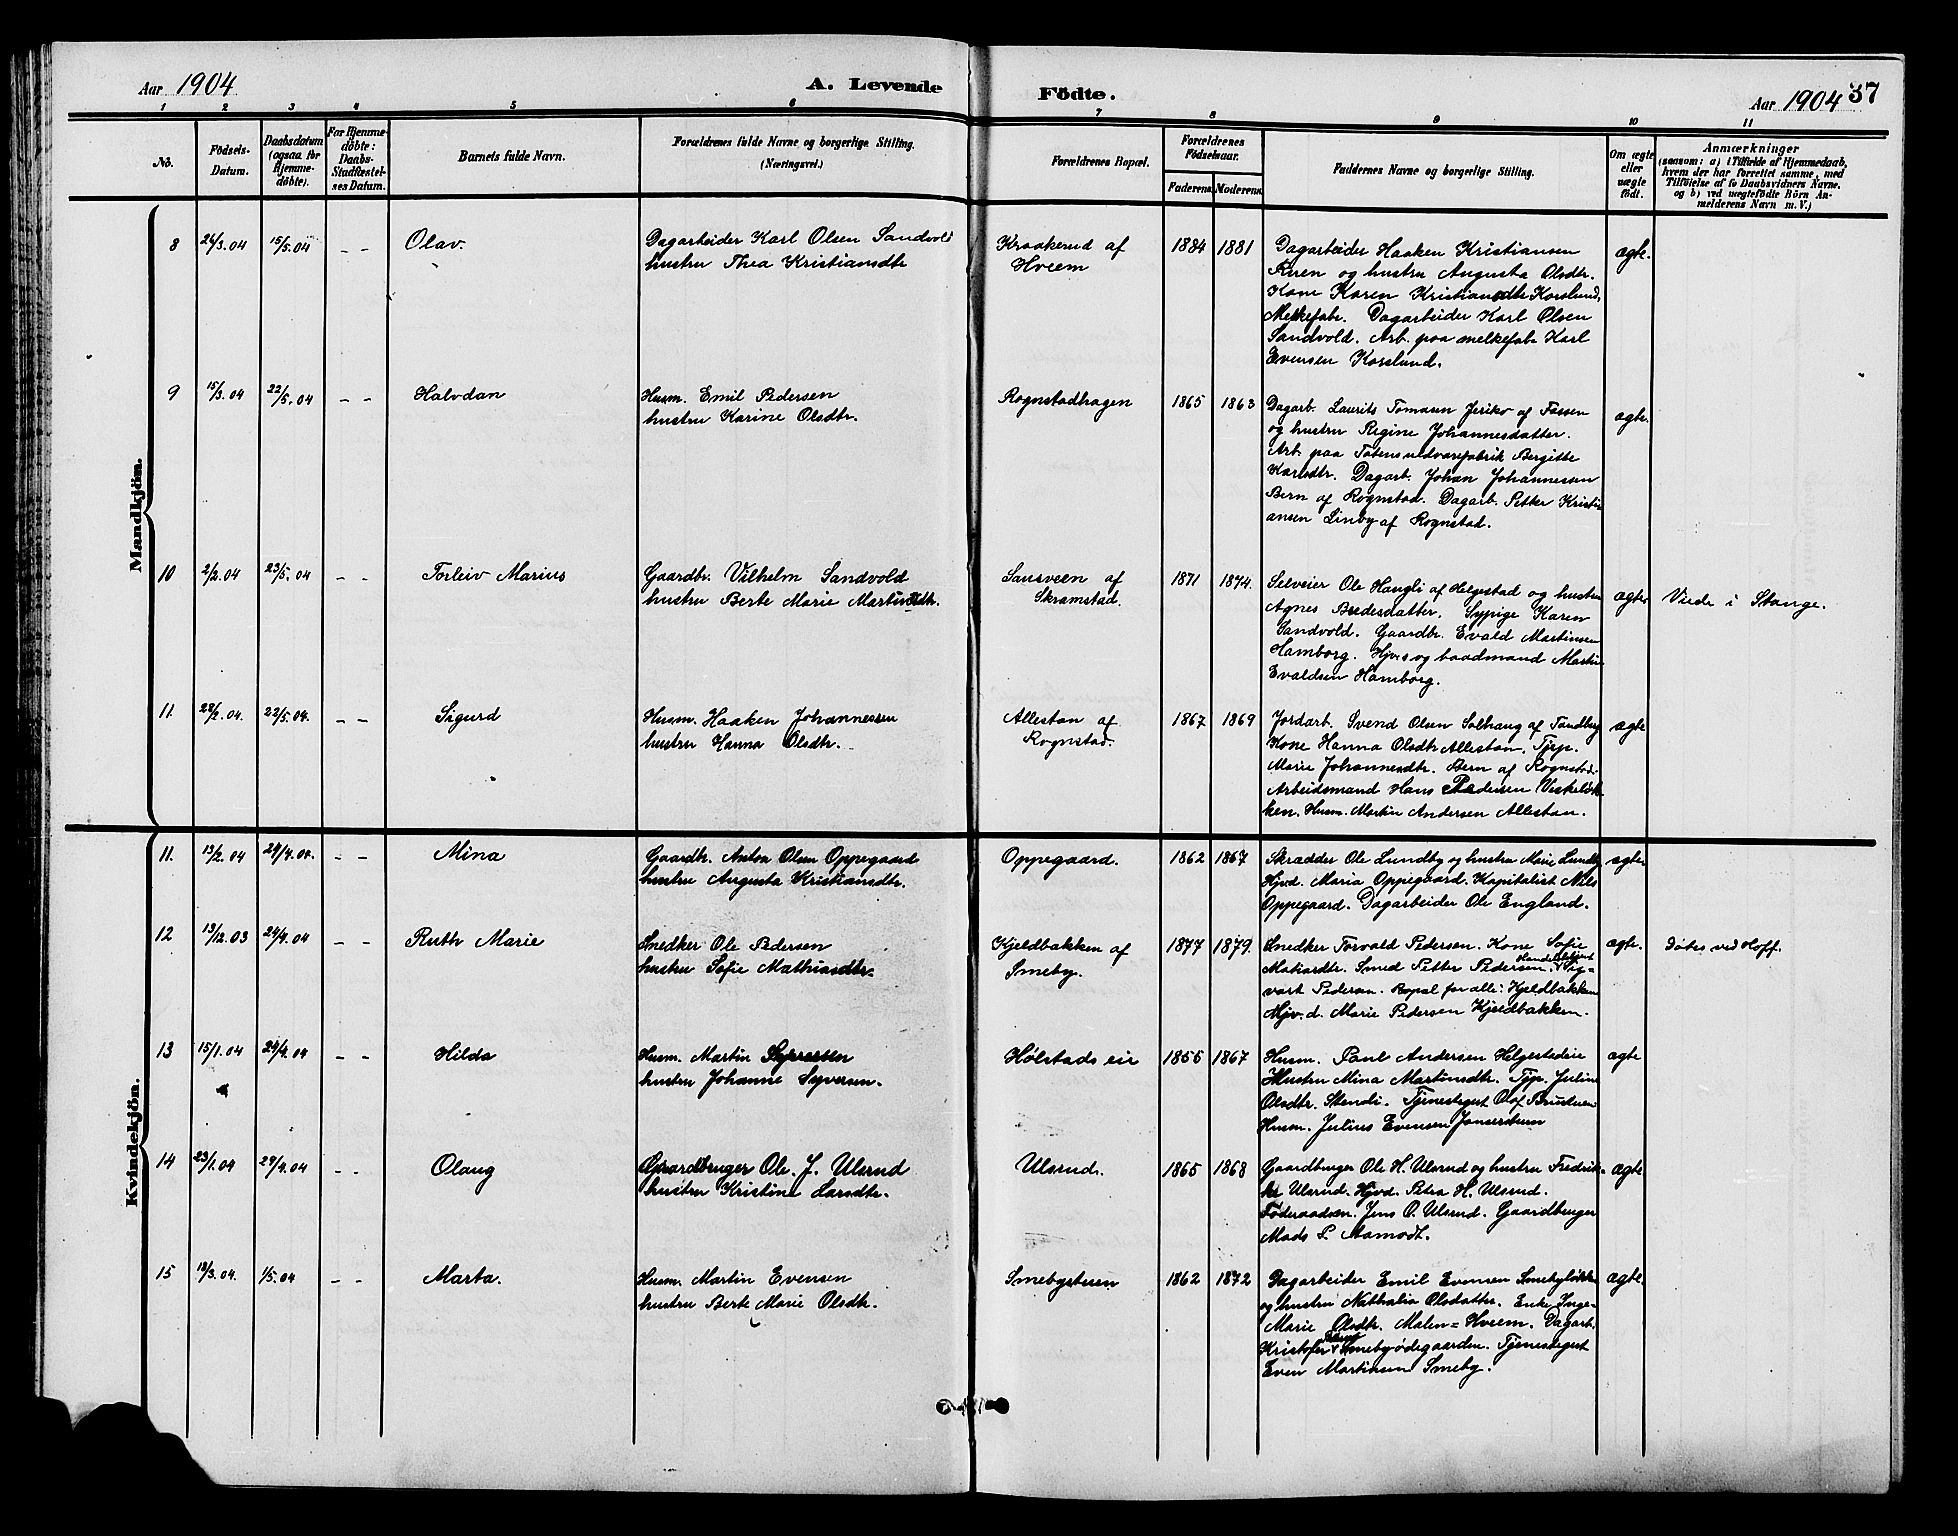 Aar 1904
A. Levende Födte.
Aar 1904 37
1 2 3 4 5 6 7 8 9 10 11
No.
Födsels-
Datum.
Daabsdatum
(ogsaa for
Hjemme-
döbte).
For Hjemme-
döbte:
Daabs-
Stadfæstel-
ses Datum.
Barnets fulde Navn.
Forældrenes fulde Navne og borgerlige Stilling.
(Næringsvei.)
Forældrenes Bopæl.
Forældrenes
Födselsaar.
Faderens. Moderens.
Faddernes Navne og borgerlige Stilling.
Om ægte
eller
uægte
födt.
Anmærkninger
(saasom: a) i Tilfælde af Hjemmedaab,
hvem der har forrettet samme, med
Tilföielse af to Daabsvidners Navne,
og b) ved uægtefödte Börn An-
melderens Navn m. V.)
Mandkjön.
8 24/3.04 15/5.04 - - Olav.
Dagarbeider Karl Olsen Sandvold
hustru Thea Kristiansdtr
Kraakerud af
Hveem
1884 1881
Dagarbeider Haaken Kristiansen
og hustru Augusta Olsdtr.
Kone Karen Kristiansdtr Korslund,
Melkefabr. Dagarbeider Karl Olsen
Sandvold. Arb. paa melkefab. Karl
Evensen Korslund.
ægte.
9 15/3.04 22/5.04 - - Halvdan
Husm. Emil Pedersen
hustru Karine Olsdtr.
Rognstadhagen
1865 1863
Dagarb. Laurits Tomasen Jeriko af Fossen
og hustru Regine Johannesdatter.
Arb. paa Totens uldvarefabrik Bergitte
Karlsdtr. Dagarb. Johan Johannessen
Bern af Rognstad. Dagarb. Petter Kristi-
ansen Linby af Rognstad.
ægte.
10 2/2.04 23/5.04 - - Torleiv Marius
Gaardbr. Vilhelm Sandvold
hustru Berte Marie Martinsdtr.
Sansveen af
Skramstad.
1871 1874.
Selveier Ole Haugli af Helgestad og hustru
Agnes Bredesdatter. Sypige Karen
Sandvold. Gaardbr. Evald Martinsen
Hamborg. Hjv.s og baadmand Martin
Evaldsen Hamborg.
ægte
Viede i Stange.
11. 28/2.04. 22/5.04. - - Sigurd
Husm. Haaken Johannessen
hustru Hanna Olsdtr.
Allestan af
Rognstad.
1867 1869
Jordarb. Svend Olsen Solhaug af Tandberg
Kone Hanna Olsdtr Allestan. Tjep.
Marie Johannesdtr. Bern af Rognstad.
Arbeidsmand Hans Pedersen Veskeløk-
ken. Husm. Martin Andersen Allestan.
ægte
Kvindekjön.
11. 13/2.04 24/4.04. - - Mina
Gaardbr. Anton Olsen Oppegaard
hustru Augusta Kristiansdtr.
Oppegaard.
1862 1867
Skrædder Ole Lundby og hustru Marie Lundby
Hjvd. Maria Oppegaard. Kapitalist Nils
Oppegaard. Dagarbeider Ole England.
ægte
12 13/12.03 24/4.04 - - Ruth Marie
Snedker Ole Pedersen
hustru Sofie Mathiasdtr.
Kjeldbakken af
Smeby.
1877 1879.
Snedker Torvald Pedersen. Kone Sofie
Matiasdtr. Smed Petter Pedersen. Handelsbetjent Sig-
vart Pedersen. Bopæl for alle: Kjeldbakken
Hjv.d. Marie Pedersen Kjeldbakken.
ægte.
Døbes ved Hoff.
13 15/1.04 24/4.04 - - Hilda
Husm. Martin Syversen
hustru Johanne Syversen.
Hølstads eie
1856 1867
Husm. Paul Andersen Helgestadeie
Hustru Mina Martinsdtr. Tjp. Juline
Olsdtr. Stendi. Tjenestegut Olof
Husm. Julius Evensen
ægte
14 23/1.04 24/4.04 - - Olaug
Gaardbruger Ole J. Ulsrud
hustru Kristine Larsdtr.
Ulsrud.
1865 1868
Gaardbruger Ole H. Ulsrud og hustru Fredrik-
ke Ulsrud. Hjvd. Petra H. Ulsrud.
Føderaadsm. Jens O. Ulsrud. Gaardbruger
Mads P. Aamodt.
ægte
15 13/3.04. 1/5.04 - - Marta.
Husm. Martin Evensen
hustru Berte Marie Olsdtr.
Smebysteen
1862 1872
Dagarbeider Emil Evensen Smebyløkken
og hustru Nathalia Olsdatter. Enke Inge-
Marie Olsdtr. Malen=Hveem. Dagarb.
Kristofer Smebyødegaarden. Tjenestegut
Even Martinsen Smeby.
ægte